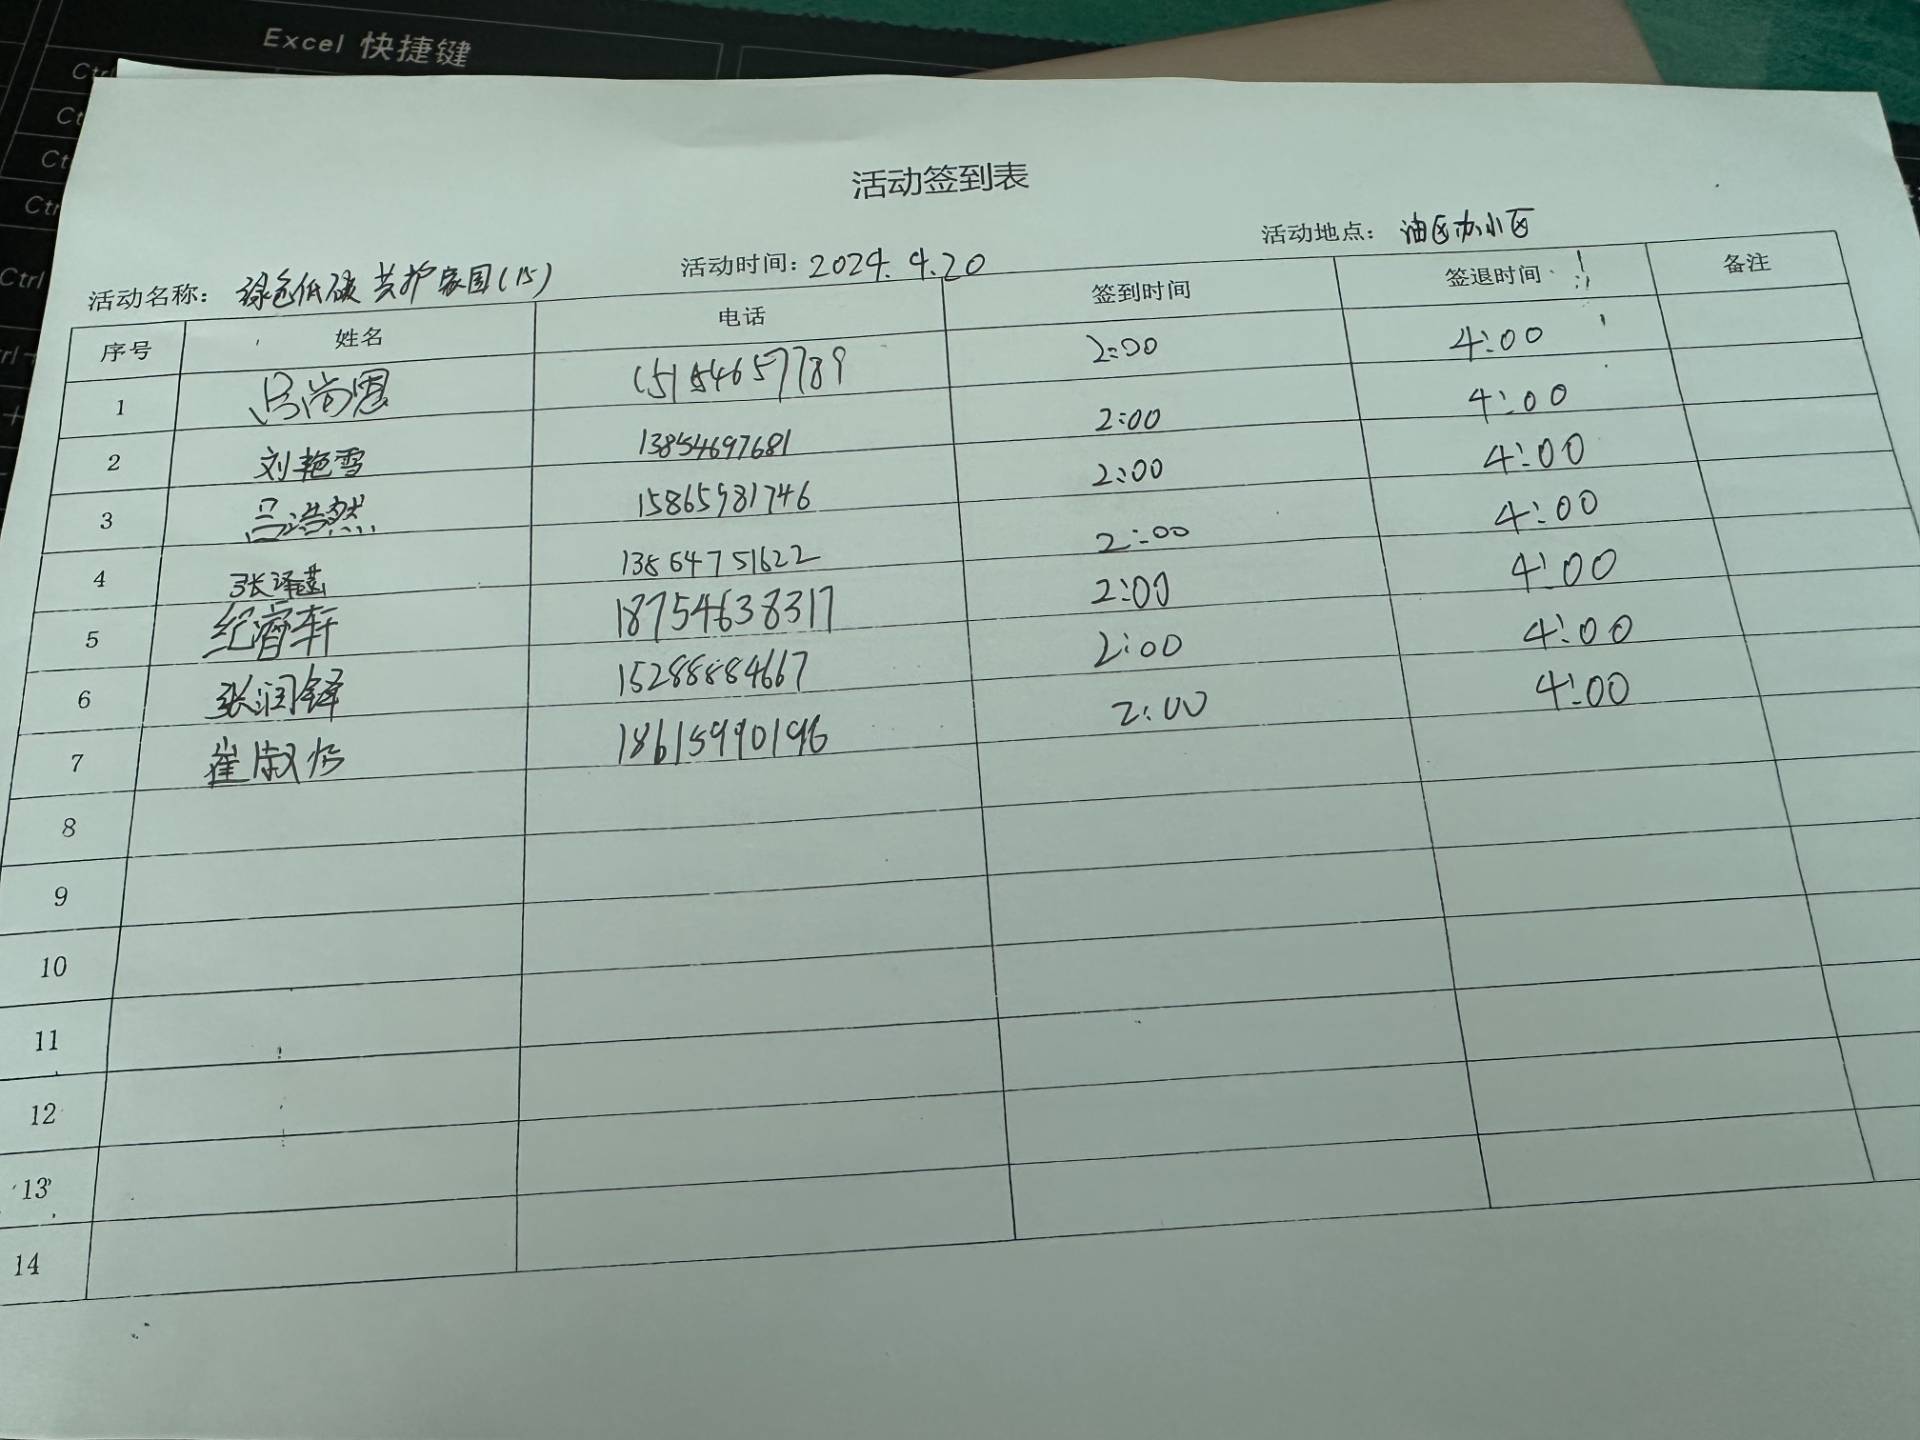 Excel 快捷键
Ctrl
Ct
Ct
Ctr
Ctrl
活动签到表
活动名称： 绿色低碳 共护家园(15) 活动时间：2024.4.20 活动地点： 油区办小区
序号 姓名 电话 签到时间 签退时间 备注
1 吕尚恩 15154657789 2:00 4:00
2 刘艳雪 13854697681 2:00 4:00
3 吕浩然 15865981746 2:00 4:00
4 张译菡 13864751622 2:00 4:00
5 纪睿轩 18754638317 2:00 4:00
6 张润铎 15288884667 2:00 4:00
7 崔淑 18615990196 2:00 4:00
8
9
10
11
12
13
14